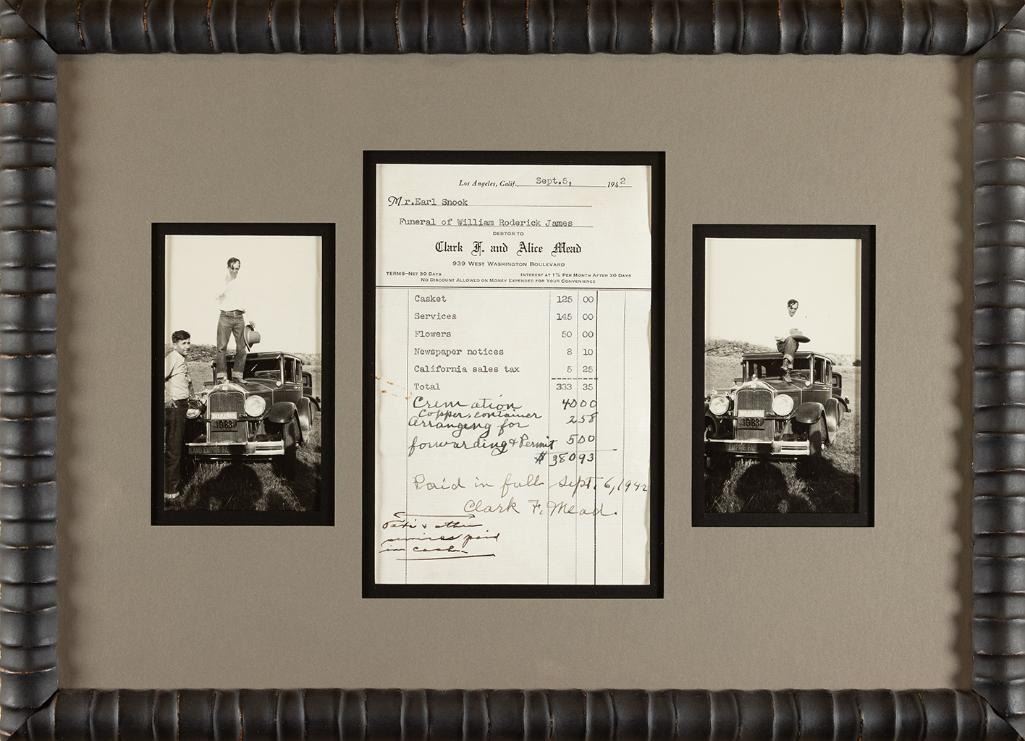 Los Angeles, Calif. Sept.5, 1942
Mr.Earl Snook
Funeral of William Roderick James
DEBTOR TO
Clark F. and Alice Mead
939 WEST WASHINGTON BOULEVARD
TERMS—NET 30 DAYS INTEREST AT 1% PER MONTH AFTER 30 DAYS
NO DISCOUNT ALLOWED ON MONEY EXPENDED FOR YOUR CONVENIENCE
Casket 125 00
Services 145 00
Flowers 50 00
Newspaper notices 8 10
California sales tax 5 25
Total 333 35
Cremation 40 00
Copper container 2 58
Arranging for
forwarding & Permit 5 00
$ 380 93
Paid in full Sept. 6, 1942
Clark F. Mead.
paid
in cash.